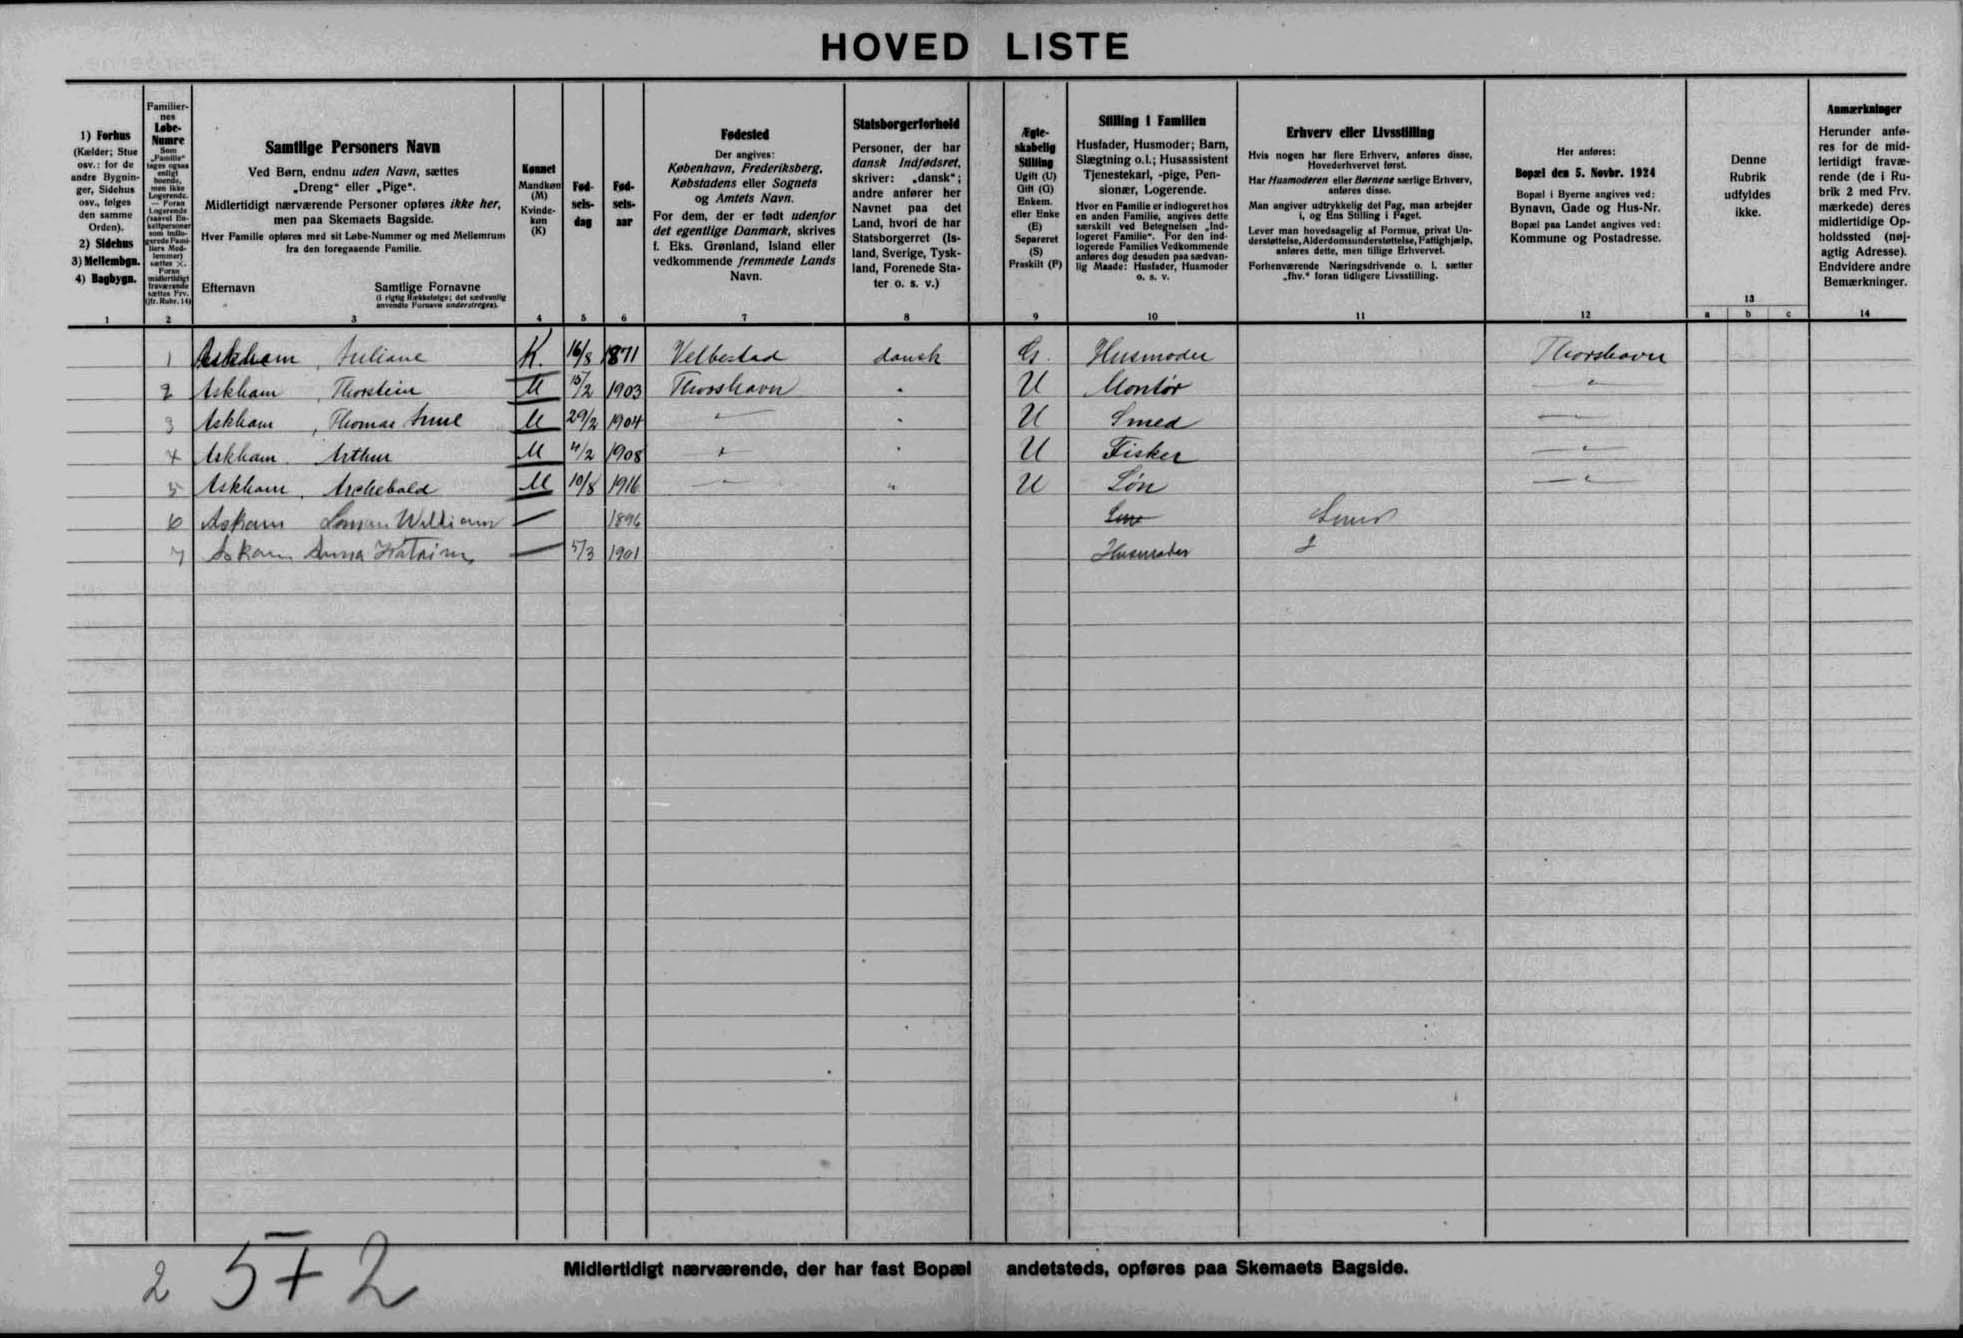 HOVED LISTE
1) Forhus
(Kælder; Stue
osv.: for de
andre Bygnin-
ger, Sidehus
osv., følges
den samme
Orden).
2) Sidehus
3) Mellembgn.
4) Bagbygn.
1
Familier-
nes
Løbe-
Numre
Som
„Familie"
tages ogsaa
enligt
boende,
men ikke
Logerende.
— Foran
Logerende
(saavel En-
keltpersoner
som indlo-
gerede Fami-
liers Med-
lemmer)
sættes ×.
Foran
midlertidigt
fraværende
sættes Frv.
(jfr. Rubr. 14)
2
Samtlige Personers Navn
Ved Børn, endnu uden Navn, sættes
„Dreng" eller „Pige".
Midlertidigt nærværende Personer opføres ikke her,
men paa Skemaets Bagside.
Hver Familie opføres med sit Løbe-Nummer og med Mellemrum
fra den foregaaende Familie.
Efternavn Samtlige Fornavne
(i rigtig Rækkefølge; det sædvanlig
anvendte Fornavn understreges).
3
Kønnet
Mandkøn
(M)
Kvinde-
køn
(K)
4
Fød-
sels-
dag
5
Fød-
sels-
aar
6
Fødested
Der angives:
København, Frederiksberg,
Købstadens eller Sognets
og Amtets Navn.
For dem, der er født udenfor
det egentlige Danmark, skrives
f. Eks. Grønland, Island eller
vedkommende fremmede Lands
Navn.
7
Statsborgerforhold
Personer, der har
dansk Indfødsret,
skriver: „dansk";
andre anfører her
Navnet paa det
Land, hvori de har
Statsborgerret (Is-
land, Sverige, Tysk-
land, Forenede Sta-
ter o. s. v.)
8
Ægte-
skabelig
Stilling
Ugift (U)
Gift (G)
Enkem.
eller Enke
(E)
Separeret
(S)
Fraskilt (F)
9
Stilling i Familien
Husfader, Husmoder; Barn,
Slægtning o.l.; Husassistent
Tjenestekarl, -pige, Pen-
sionær, Logerende.
Hvor en Familie er indlogeret hos
en anden Familie, angives dette
særskilt ved Betegnelsen „Ind-
logeret Familie". For den ind-
logerede Families Vedkommende
anføres dog desuden paa sædvan-
lig Maade: Husfader, Husmoder
o. s. v.
10
Erhverv eller Livsstilling
Hvis nogen har flere Erhverv, anføres disse,
Hovederhvervet først.
Har Husmoderen eller Børnene særlige Erhverv,
anføres disse.
Man angiver udtrykkelig det Fag, man arbejder
i, og Ens Stilling i Faget.
Lever man hovedsagelig af Formue, privat Un-
derstøttelse, Alderdomsunderstøttelse, Fattighjælp,
anføres dette, men tillige Erhvervet.
Forhenværende Næringsdrivende o. l. sætter
„fhv." foran tidligere Livsstilling.
11
Her anføres:
Bopæl den 5. Novbr. 1924
Bopæl i Byerne angives ved:
Bynavn, Gade og Hus-Nr.
Bopæl paa Landet angives ved:
Kommune og Postadresse.
12
Denne
Rubrik
udfyldes
ikke.
13
a b c
Anmærkninger
Herunder anfø-
res for de mid-
lertidigt fravæ-
rende (de i Ru-
brik 2 med Frv.
mærkede) deres
midlertidige Op-
holdssted (nøj-
agtig Adresse).
Endvidere andre
Bemærkninger.
14
1 Askham, Juliane K. 16/8 1871 Velbestad dansk G. Husmoder Thorshavn
2 Askham, Thorstein M 15/2 1903 Thorshavn " U Montør "
3 Askham, Thomas M 29/2 1904 " " U Smed "
4 Askham Arthur M 4/2 1908 " " U Fisker "
5 Askham, Archebald M 10/8 1916 " " U Søn "
6 Askam William — 1896
7 Askam Anna Katrine — 5/3 1901 Husmoder
2 5 + 2
Midlertidigt nærværende, der har fast Bopæl andetsteds, opføres paa Skemaets Bagside.